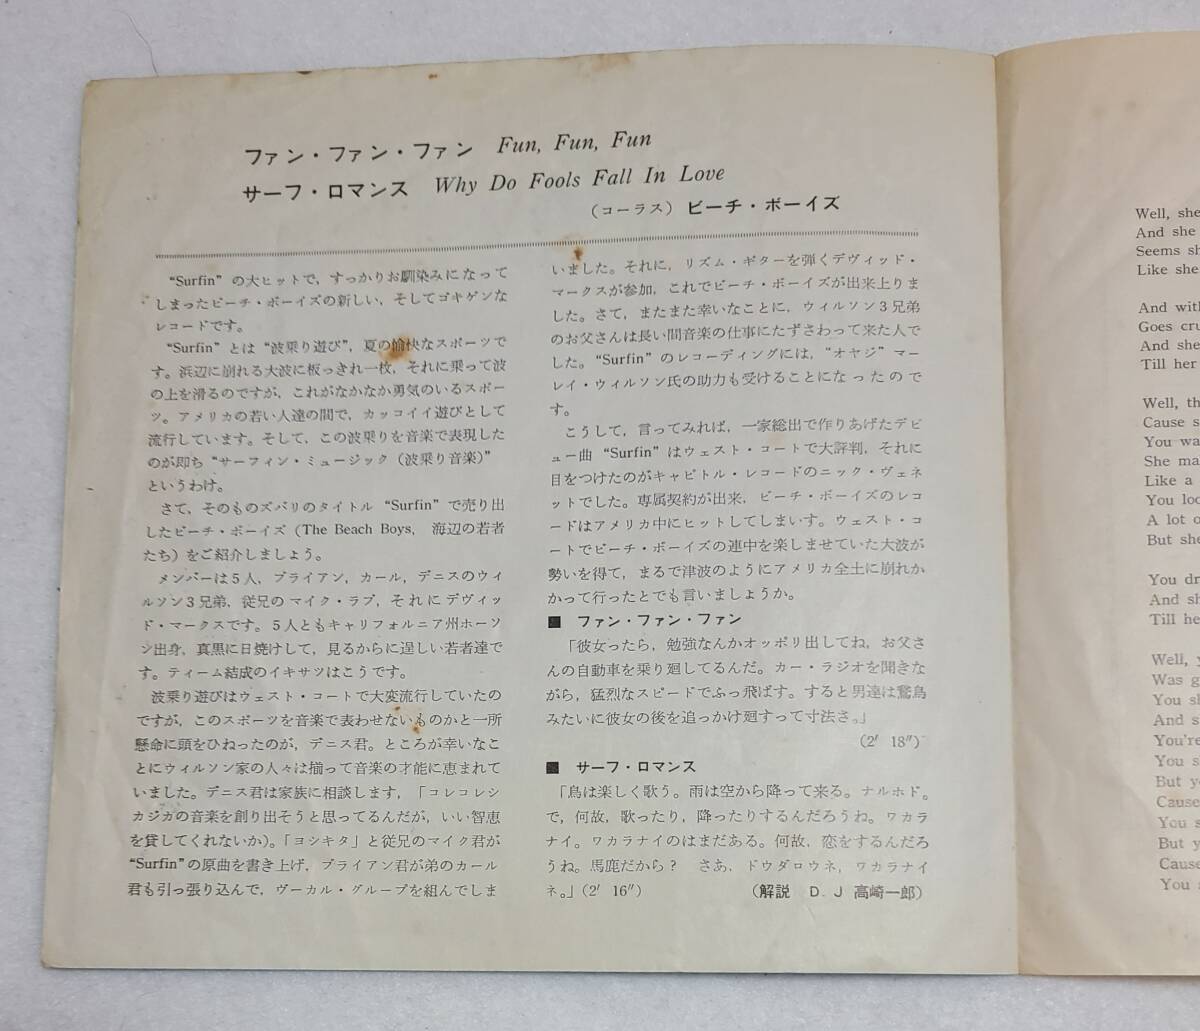 ファン・ファン・ファン Fun, Fun, Fun
サーフ・ロマンス Why Do Fools Fall In Love
（コーラス） ビーチ・ボーイズ
“Surfin” の大ヒットで，すっかりお馴染みになって
しまったビーチ・ボーイズの新しい，そしてゴキゲンな
レコードです。
“Surfin” とは “波乗り遊び”，夏の愉快なスポーツで
す。浜辺に崩れる大波に板っきれ一枚，それに乗って波
の上を滑るのですが，これがなかなか勇気のいるスポー
ツ。アメリカの若い人達の間で，カッコイイ遊びとして
流行しています。そして，この波乗りを音楽で表現した
のが即ち “サーフィン・ミュージック（波乗り音楽）”
というわけ。
さて，そのものズバリのタイトル “Surfin” で売り出
したビーチ・ボーイズ (The Beach Boys, 海辺の若者
たち）をご紹介しましょう。
メンバーは５人，ブライアン，カール，デニスのウィ
ルソン３兄弟，従兄のマイク・ラブ，それにデヴィッ
ド・マークスです。５人ともキャリフォルニア州ホーソ
ン出身，真黒に日焼けして，見るからに逞しい若者達で
す。ティーム結成のイキサツはこうです。
波乗り遊びはウェスト・コートで大変流行していたの
ですが，このスポーツを音楽で表わせないものかと一所
懸命に頭をひねったのが，デニス君。ところが幸いなこ
とにウィルソン家の人々は揃って音楽の才能に恵まれて
いました。デニス君は家族に相談します，「コレコレシ
カジカの音楽を創り出そうと思ってるんだが，いい智恵
を貸してくれないか）。「ヨシキタ」と従兄のマイク君が
“Surfin” の原曲を書き上げ，ブライアン君が弟のカール
君も引っ張り込んで，ヴーカル・グループを組んでしま
いました。それに，リズム・ギターを弾くデヴィッド・
マークスが参加，これでビーチ・ボーイズが出来上りま
した。さて，またまた幸いなことに，ウィルソン３兄弟
のお父さんは長い間音楽の仕事にたずさわって来た人で
した。“Surfin” のレコーディングには，“オヤジ” マー
レイ・ウィルソン氏の助力も受けることになったので
す。
こうして，言ってみれば，一家総出で作りあげたデビ
ュー曲 “Surfin” はウェスト・コートで大評判，それに
目をつけたのがキャピトル・レコードのニック・ヴェネ
ットでした。専属契約が出来，ビーチ・ボーイズのレコ
ードはアメリカ中にヒットしてしまいす。ウェスト・コ
ートでビーチ・ボーイズの連中を楽しませていた大波が
勢いを得て，まるで津波のようにアメリカ全土に崩れか
かって行ったとでも言いましょうか。
■ ファン・ファン・ファン
「彼女ったら，勉強なんかオッポリ出してね，お父さ
んの自動車を乗り廻してるんだ。カー・ラジオを聞きな
がら，猛烈なスピードでふっ飛ばす。すると男達は鵞鳥
みたいに彼女の後を追っかけ廻すって寸法さ。」
(2′ 18″)
■ サーフ・ロマンス
「鳥は楽しく歌う。雨は空から降って来る。ナルホド。
で，何故，歌ったり，降ったりするんだろうね。ワカラ
ナイ。ワカラナイのはまだある。何故，恋をするんだろ
うね。馬鹿だから？ さあ，ドウダロウネ，ワカラナイ
ネ。」(2′ 16″) （解説 D．J 高崎一郎）
Well, she
And she
Seems sh
Like she
And with
Goes cru
And she
Till her
Well, th
Cause s
You wa
She ma
Like a
You loo
A lot o
But she
You dr
And sh
Till he
Well, y
Was g
You sh
And s
You're
You s
But yo
Cause
You s
But y
Cause
You s